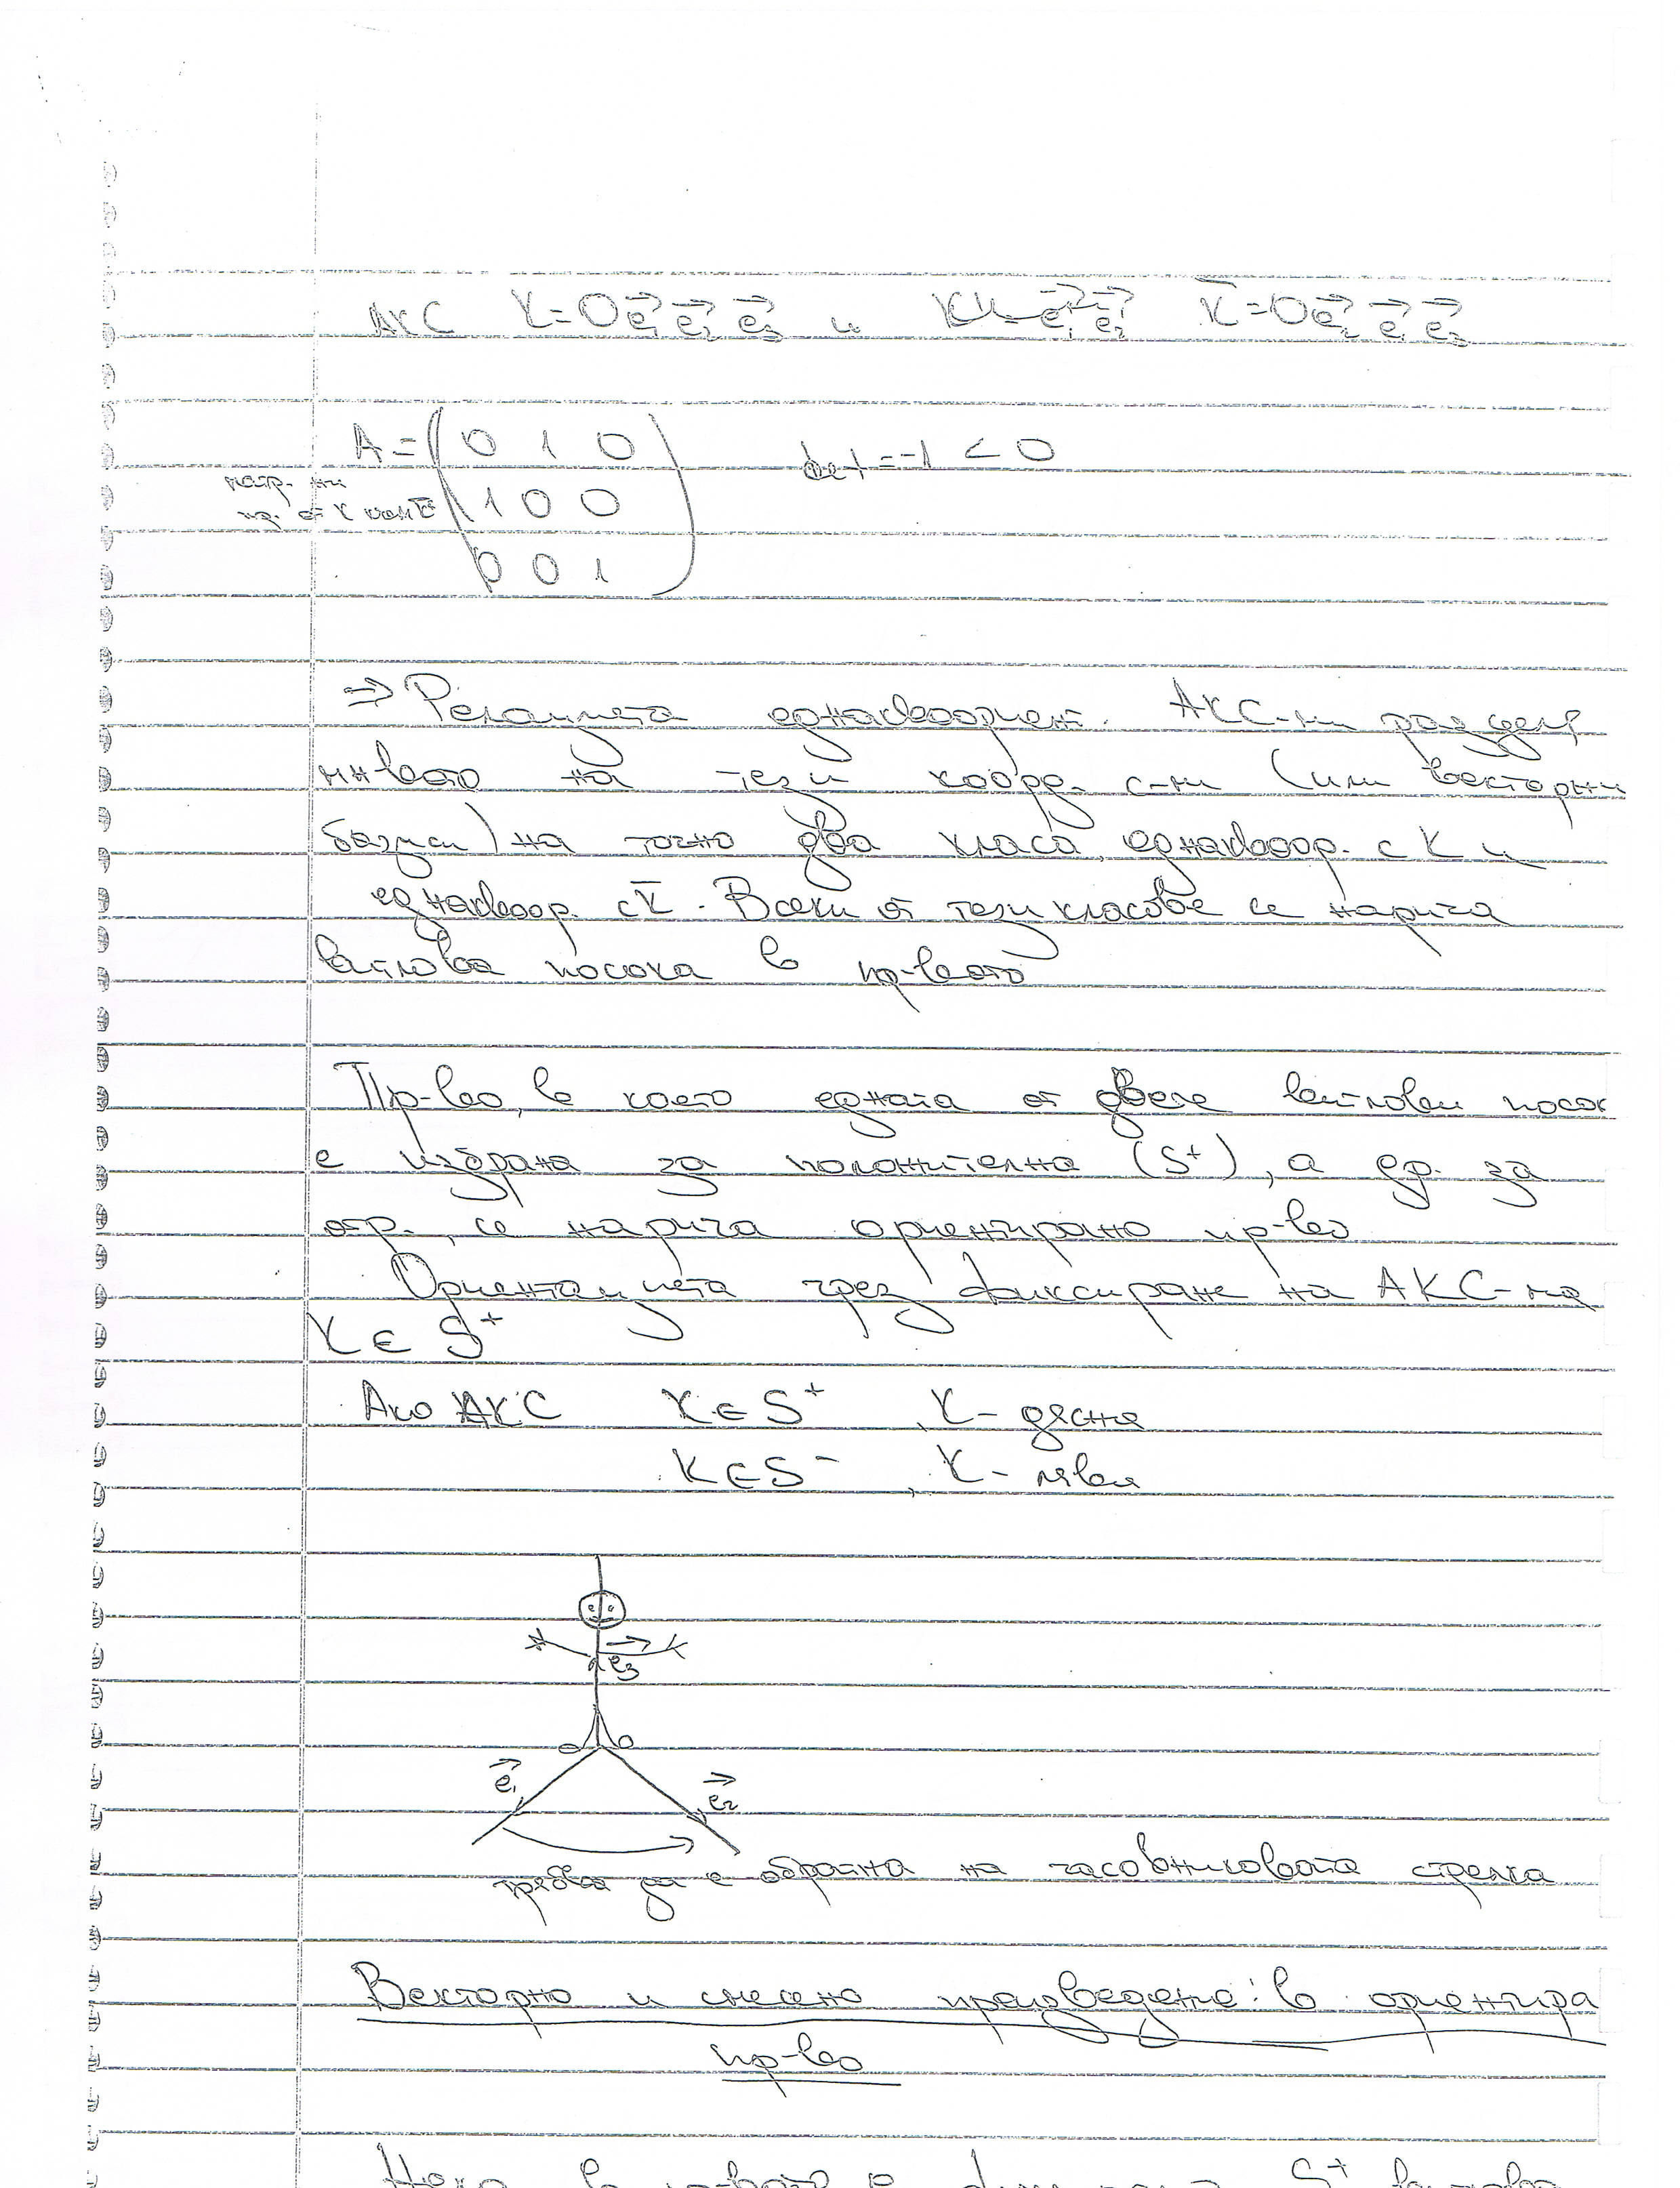 АКС K=Oe₁→e₂→e₃→ и K̄=Oe₂→e₁→e₃→
A=(0 1 0 det=-1 < 0
1 0 0
0 0 1)
⇒ Релацията еднаквоориент. АКС-ми разделя
мн-вото на тези коорд. с-ми (или векторни
базиси) на точно два класа, еднаквоор. с K и
еднаквоор. с K̄. Всеки от тези класове се нарича
винтова посока в пр-вото
Пр-во, в което едната от двете винтови посок
е избрана за положителна (S⁺), а др. за
отр., се нарича ориентирано пр-во
Ориентацията чрез фиксиране на АКС-ма
K ∈ S⁺
Ако АКС K ∈ S⁺, K - дясна
K ∈ S⁻, K - лява
e₃→
e₁→
e₂→
трябва да е обратна на часовниковата стрелка
Векторно и смесено произведение: в ориентира
пр-во
Нека в пр-вото е S⁺ винтова